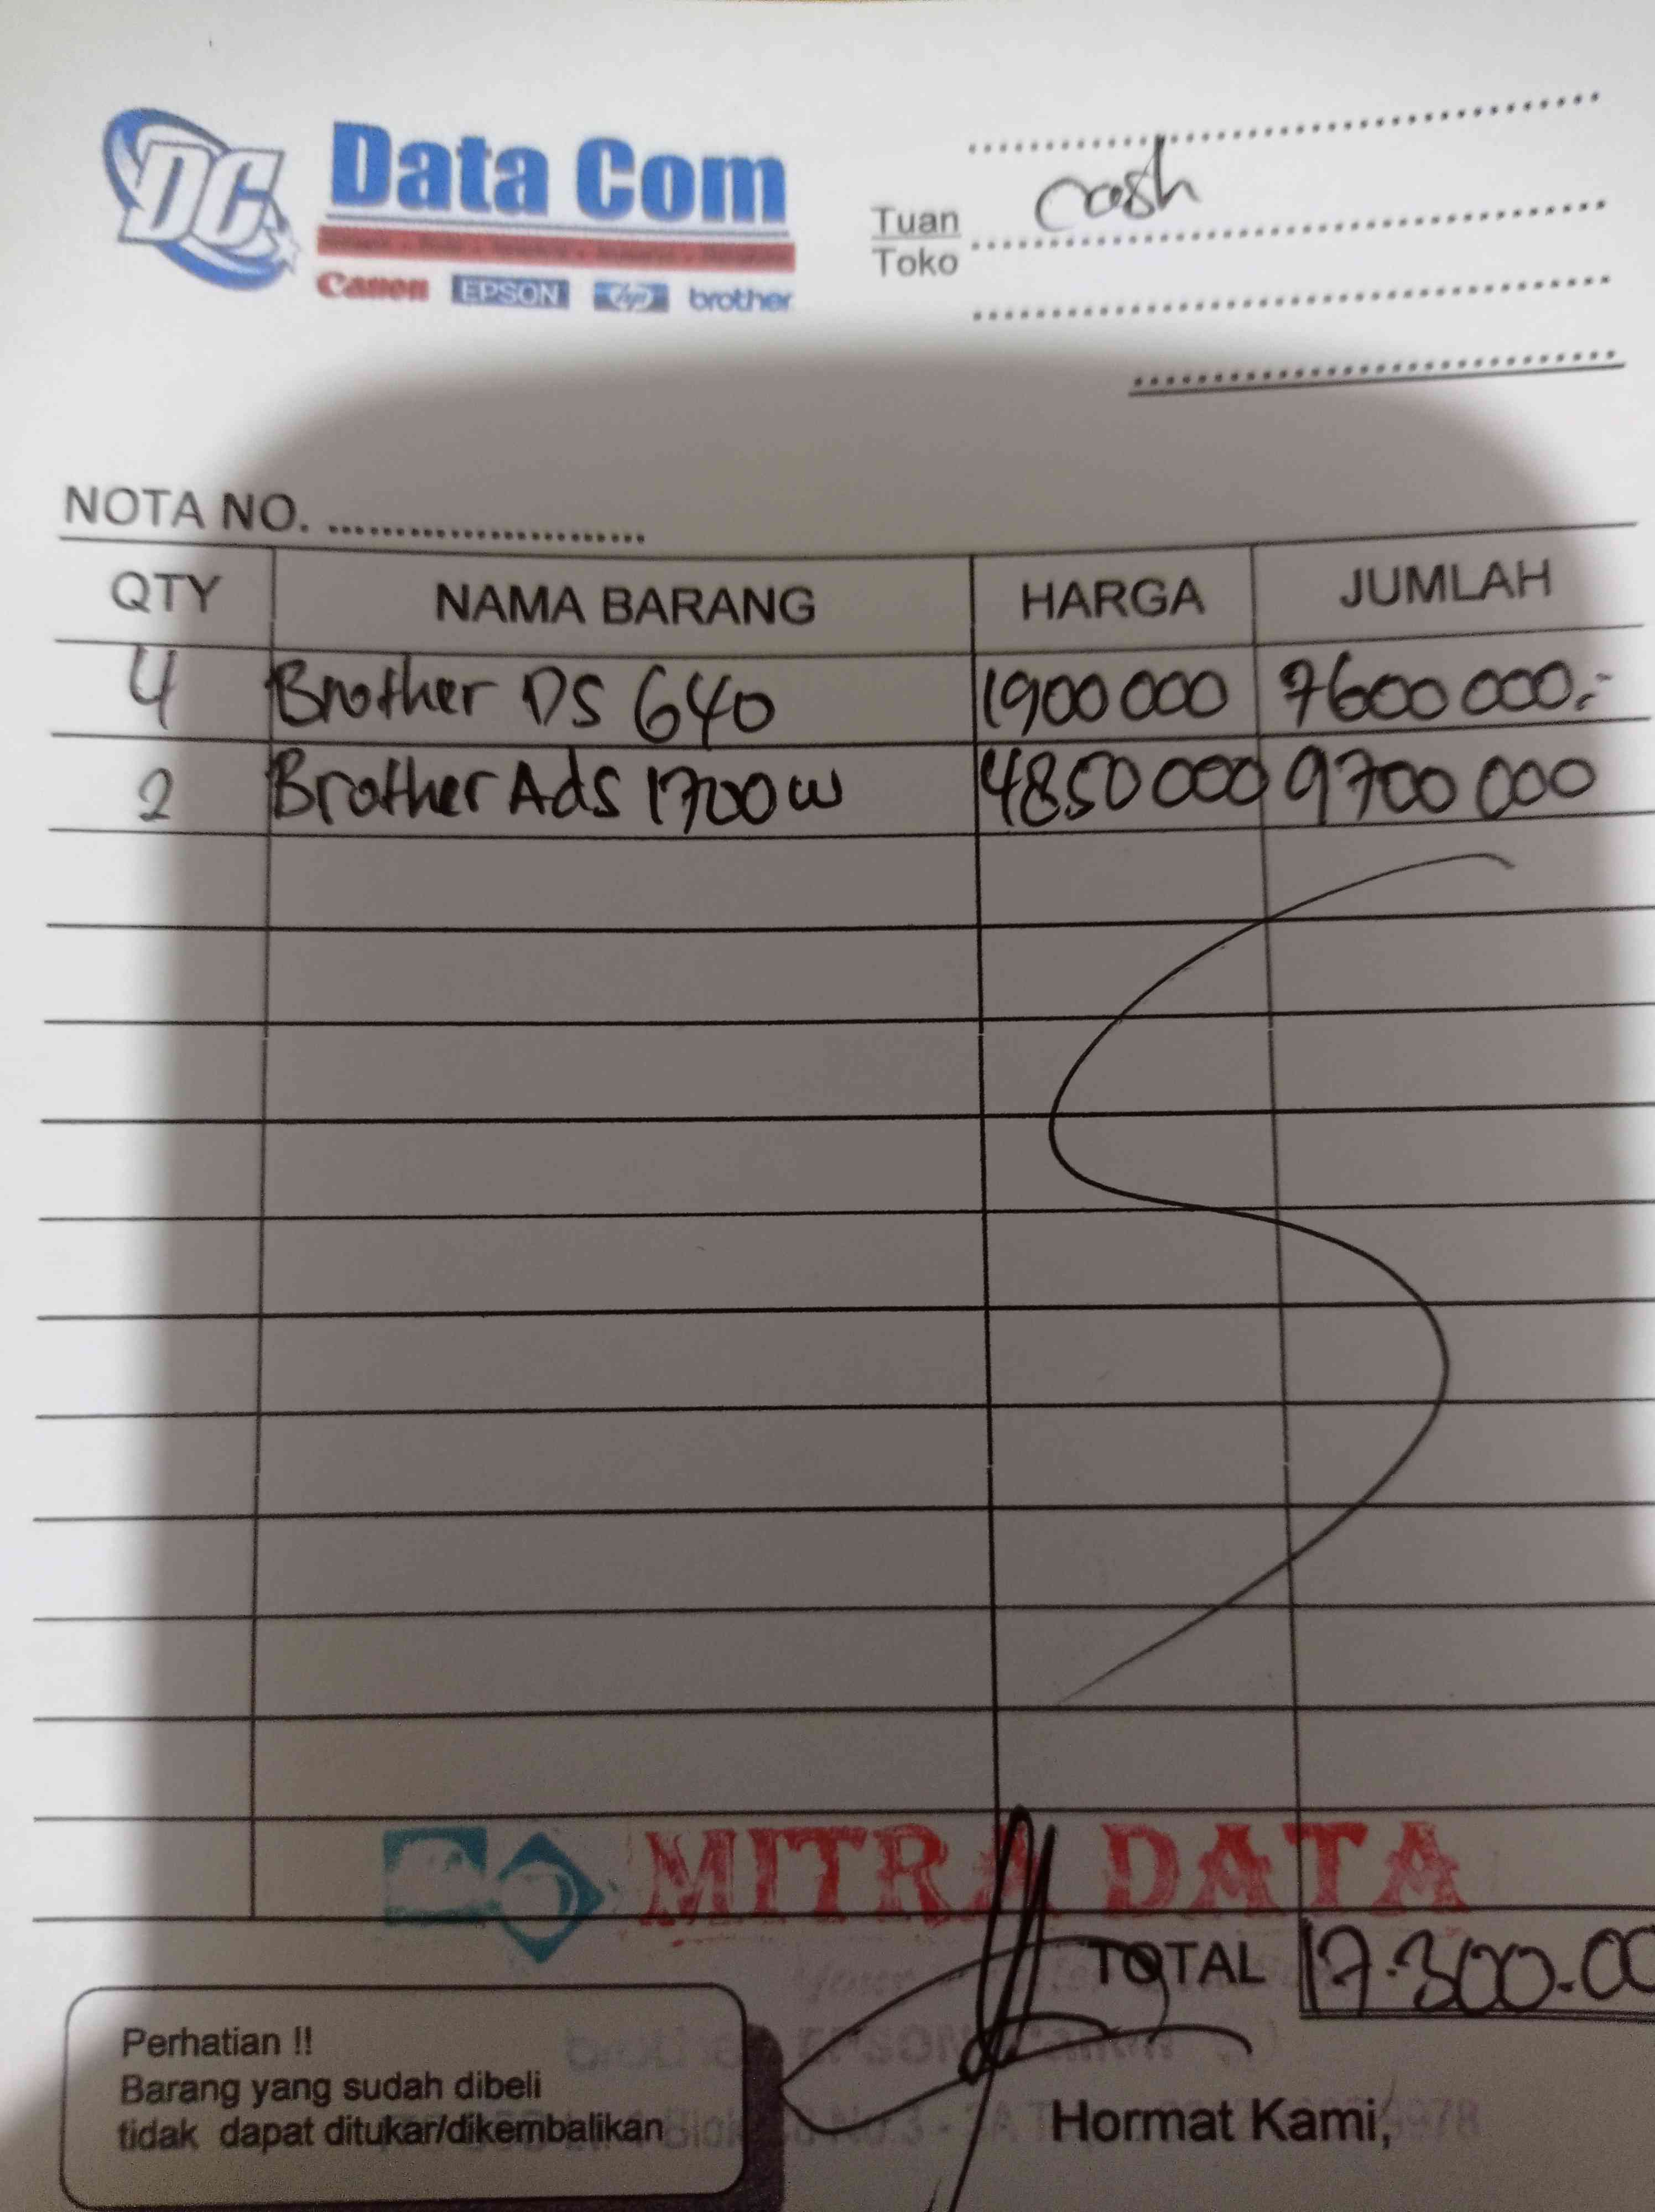 DC Data Com
Canon EPSON hp brother
Tuan cash
Toko
NOTA NO. ........................
QTY NAMA BARANG HARGA JUMLAH
4 Brother DS 640 1900 000 7600 000.-
2 Brother Ads 1700 w 4850 000 9700 000
MITRA DATA
TOTAL 17.300.00
Perhatian !!
Barang yang sudah dibeli
tidak dapat ditukar/dikembalikan
Hormat Kami,